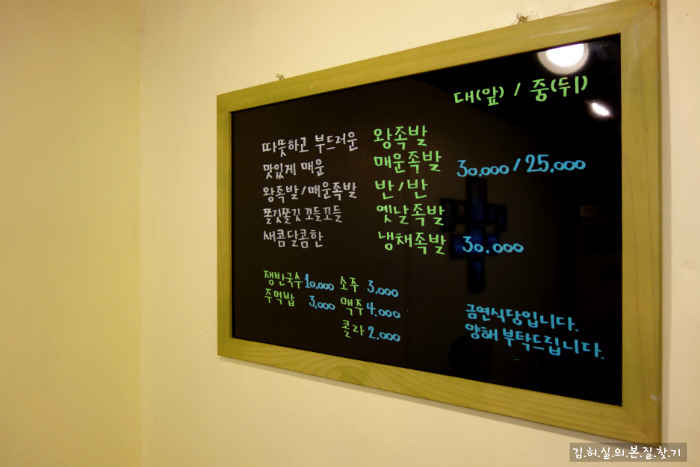 대(앞) / 중(뒤)
따뜻하고 부드러운 왕족발
맛있게 매운 매운족발 30,000 / 25,000
왕족발/매운족발 반/반
쫄깃쫄깃 꼬들꼬들 옛날족발
새콤달콤한 냉채족발 30.000
쟁반국수 10,000 소주 3,000
주먹밥 3,000 맥주 4,000
콜라 2,000
금연식당입니다.
양해 부탁드립니다.
김.허.실.의.본.질.찾.기